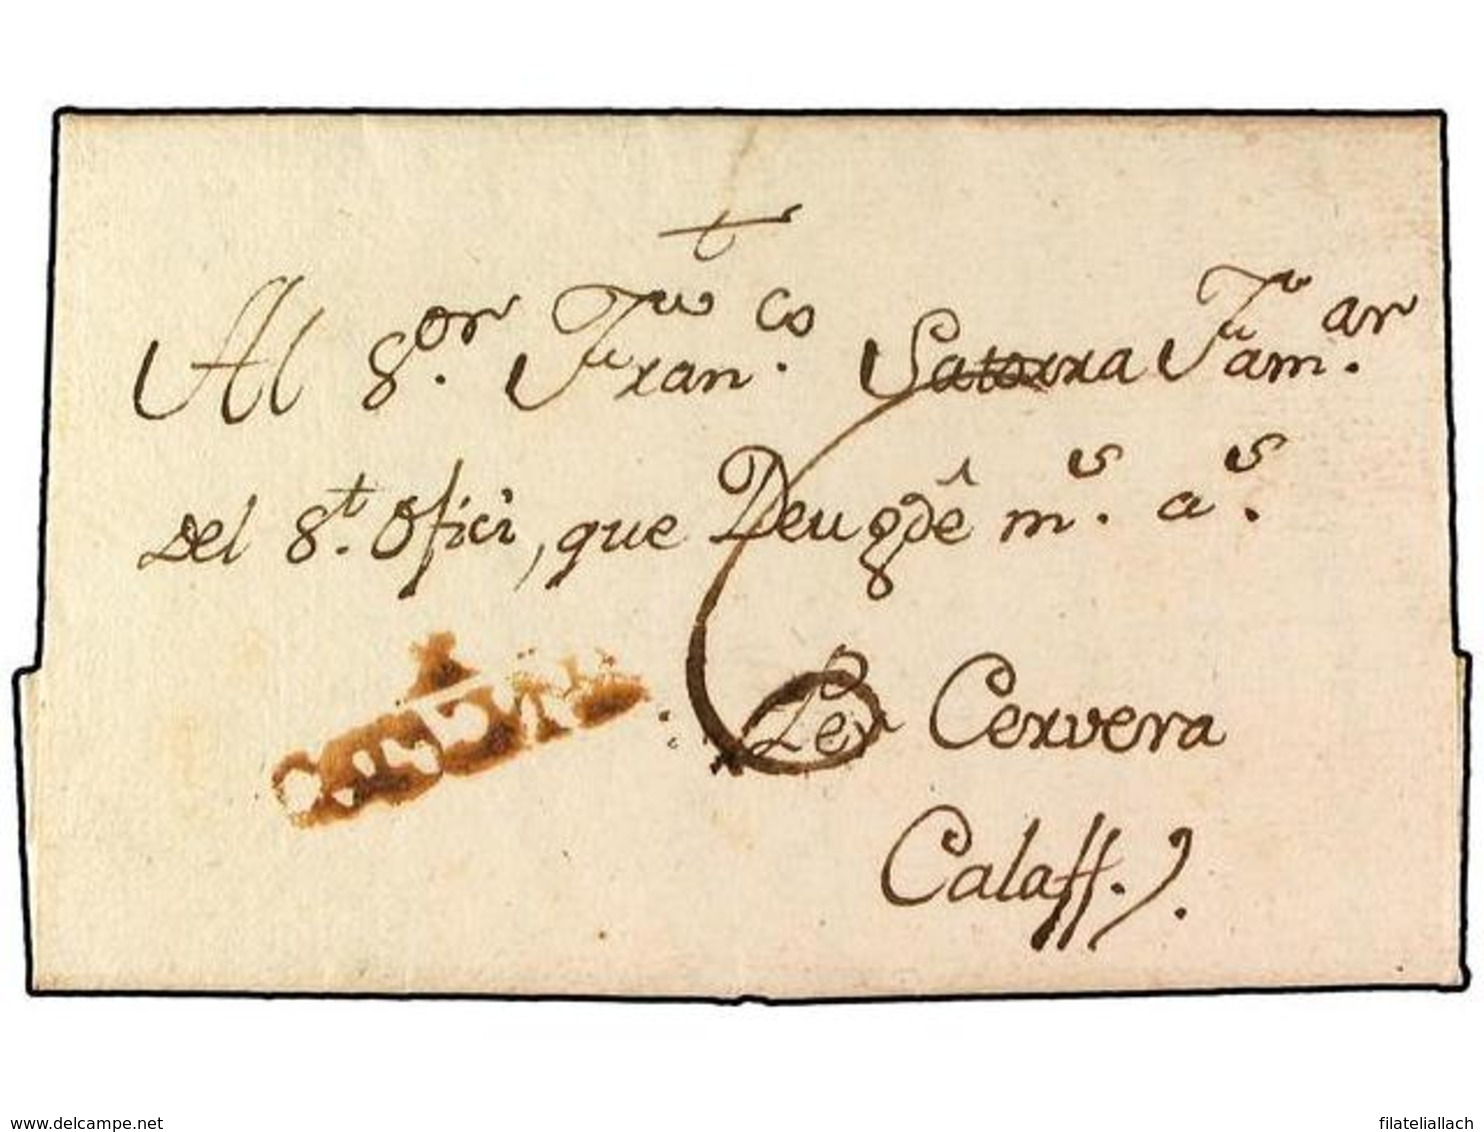 Al S.or Fran.co Satorra Fam.ar
del S.t Ofici, que Deu gde m.s a.s
Per Cervera
Calaff.
delcampe.net
filateliallach